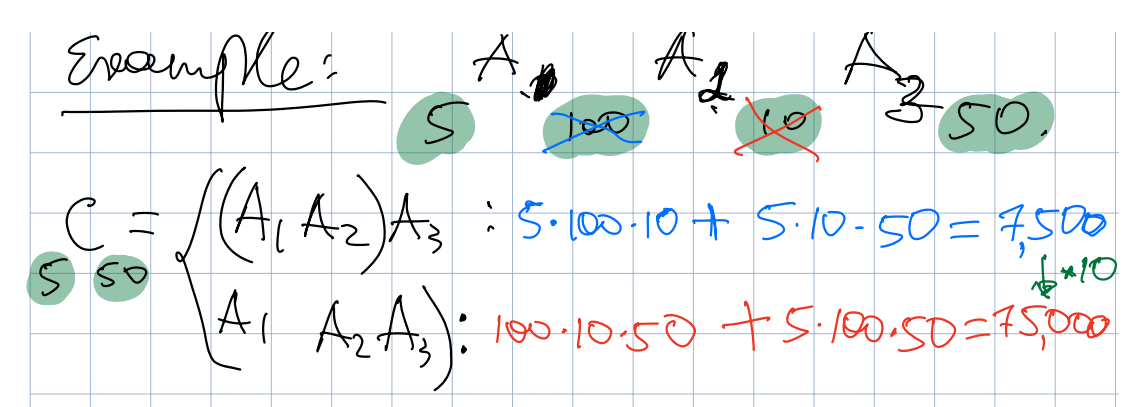 Example: A₁ A₂ A₃
5 100 10 50.
C = { (A₁ A₂) A₃ : 5·100·10 + 5·10·50 = 7,500
5 50 ↓*10
A₁ A₂ A₃) : 100·10·50 + 5·100·50 = 75,000